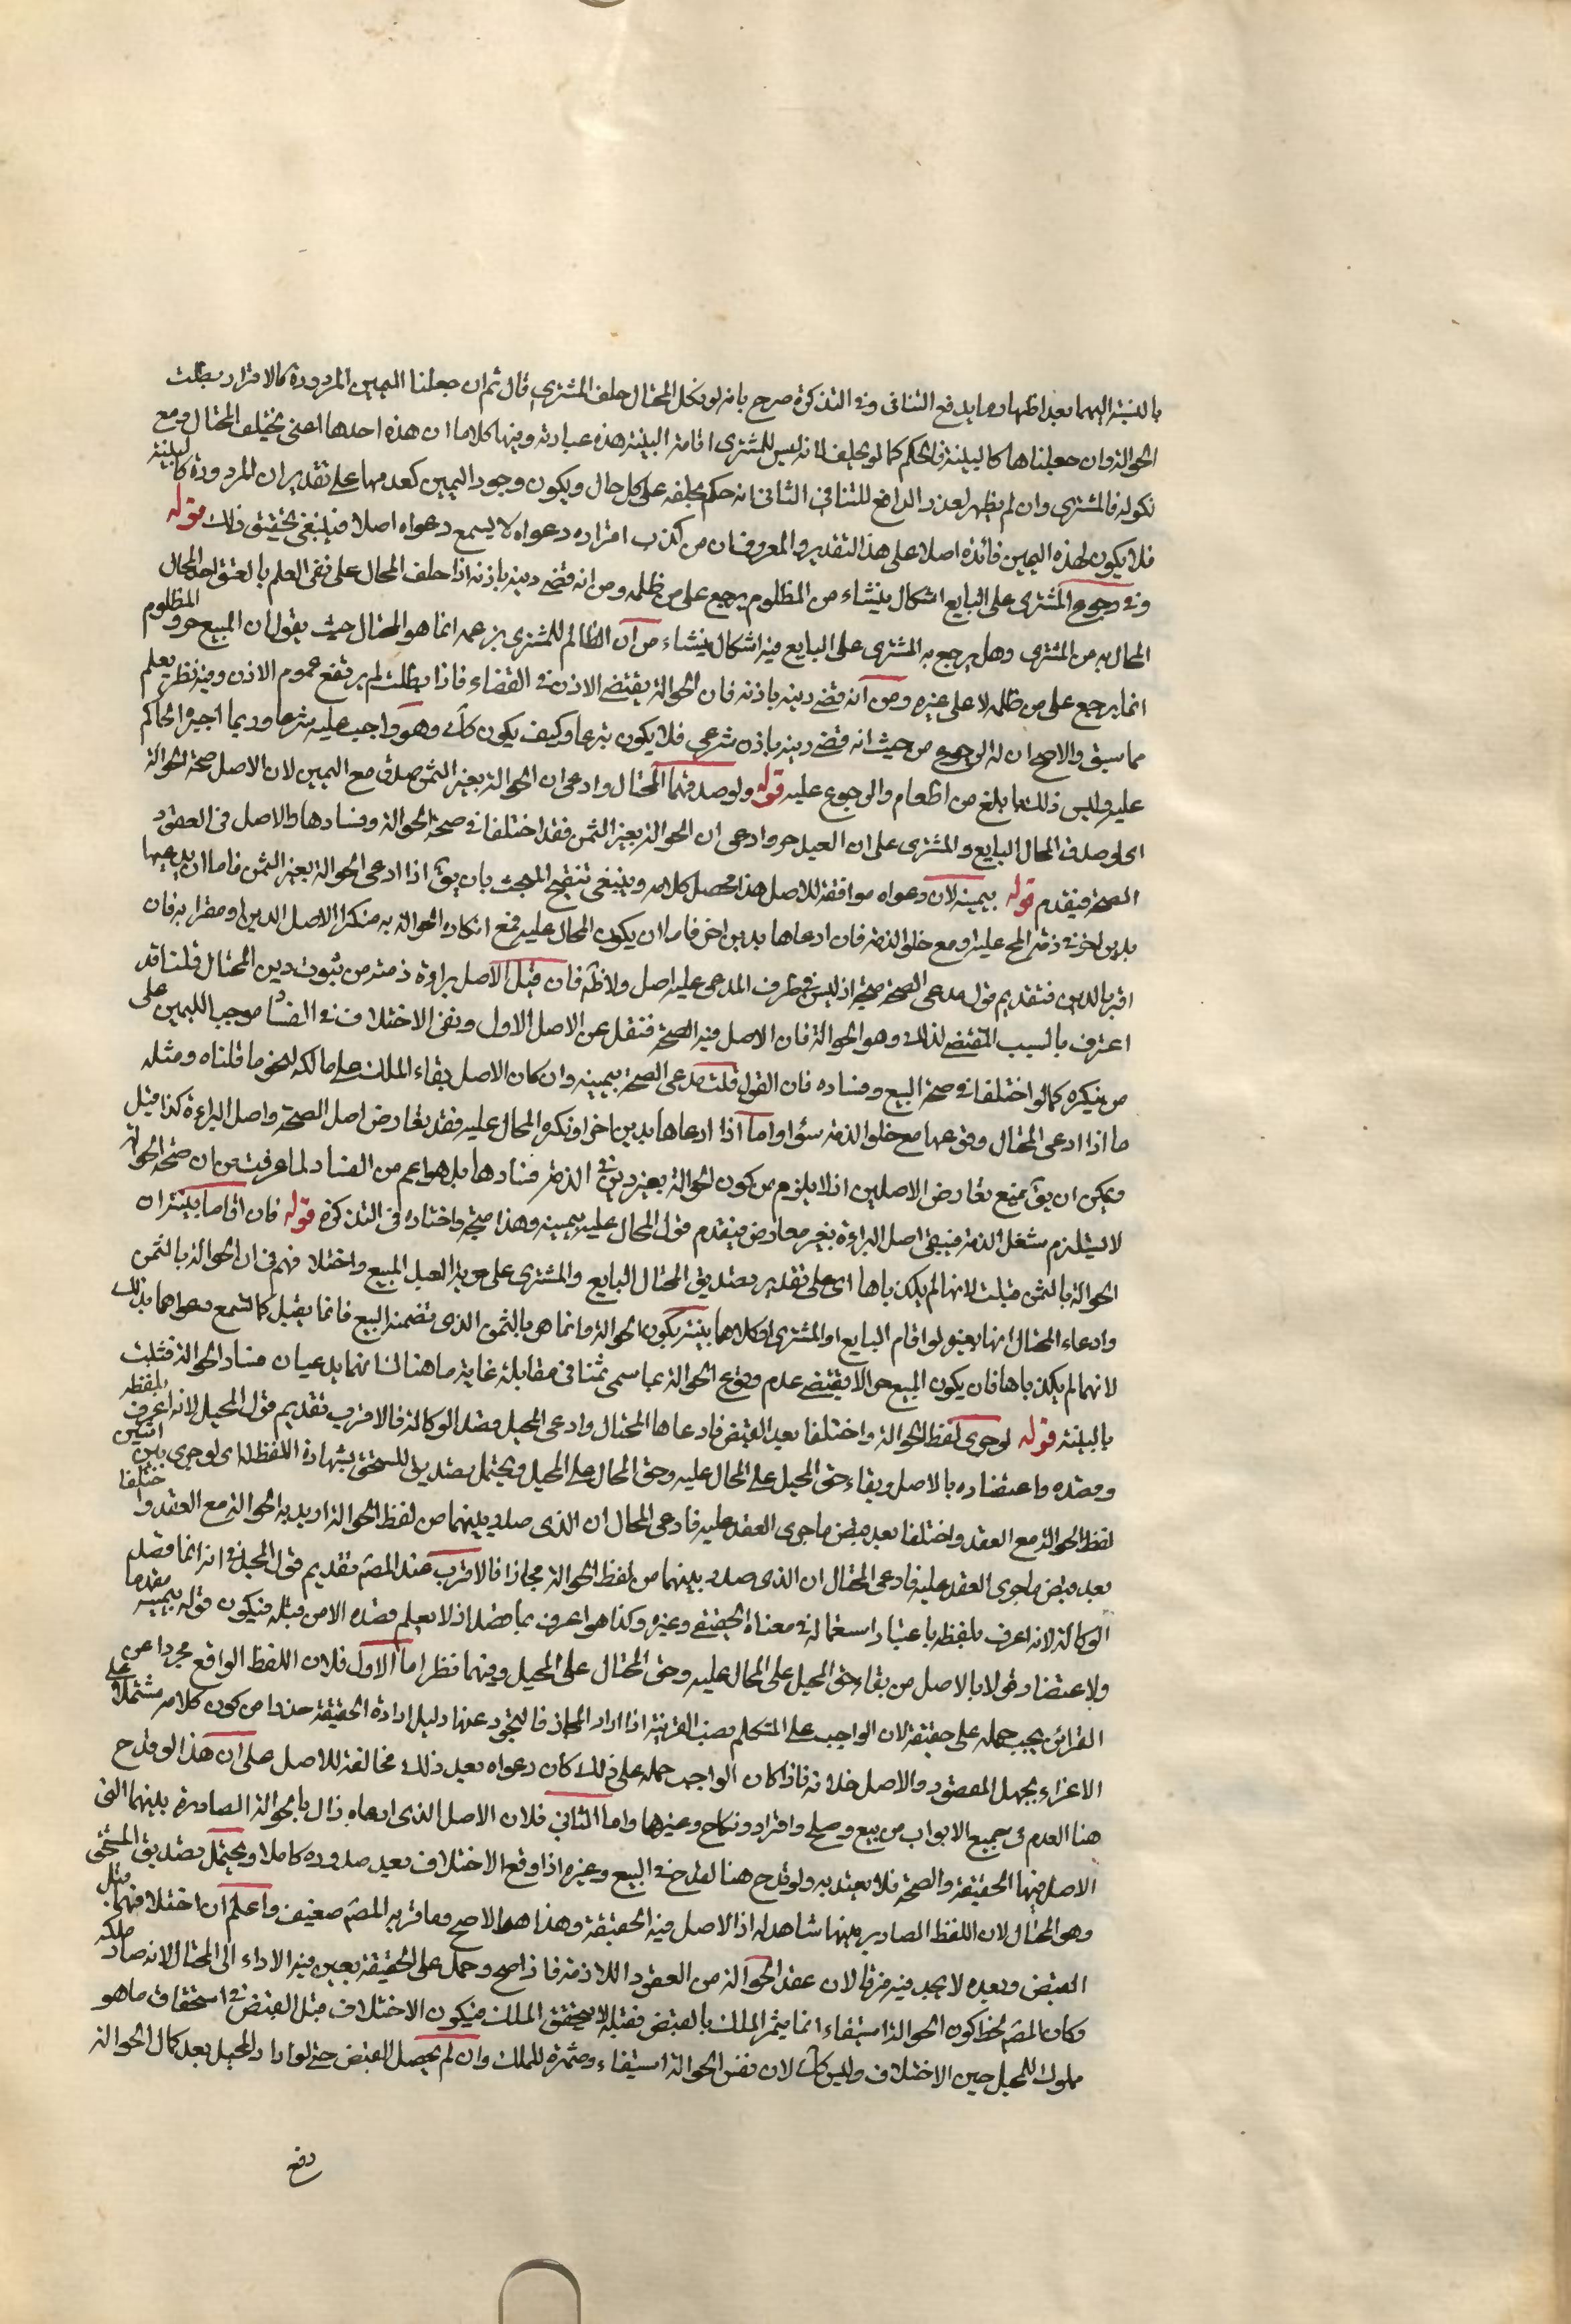 بالنسبة اليهما بعد اظهار ما يدفع التنافى وفى التذكرة صرح بانه لو نكل المحتال حلف المشترى قال ثم ان جعلنا اليمين المردودة كالاقرار بطلت
الحوالة وان جعلناها كالبينة فالحكم كما لو يحلف لانه ليس للمشترى اقامة البينة هذه عبارته وفيها كلاما ان هذه احدها اعنى تحليف المحتال ومع
نكوله فالمشترى وان لم يظهر لعذر الدافع للتنافى الثانى انه حكم بحلفه على كل حال ويكون وجود اليمين كعدمها على تقدير ان المردودة كالبينة
فلا يكون لهذه اليمين فائدة اصلا على هذا التقدير والمعروف ان من كذب اقراره دعواه لا يسمع دعواه اصلا فينبغى تحقيق ذلك قوله
وفى رجوع المشترى على البايع اشكال ينشاء من المظلوم يرجع على من ظلمه ومن انه قضى دينه باذنه اذا حلف المحال على نفى العلم بالعتق اخذ المال
المحال به من المشترى وهل يرجع به المشترى على البايع فيه اشكال ينشاء من ان الظالم للمشترى بزعمه انما هو المحتال حيث يقول ان المبيع حر والمظلوم
انما يرجع على من ظلمه لا على غيره ومن انه قضى دينه باذنه فان الحوالة يقتضى الاذن فى القضاء فاذا بطلت لم يرتفع عموم الاذن وفيه نظر يعلم
مما سبق والاصح ان له الرجوع من حيث انه قضى دينه باذن شرعى فلا يكون تبرعا وكيف يكون كك وهو واجب عليه شرعا وربما اجبره الحاكم
عليه وليس ذلك بما بلغ من اطعام والرجوع عليه قوله ولو صدقهما المحتال وادعى ان الحوالة بغير الثمن صدق مع اليمين لان الاصل صحة الحوالة
اى لو صدق المحال البايع والمشترى على ان العبد حر وادعى ان الحوالة بغير الثمن فقد اختلفا فى صحة الحوالة وفسادها والاصل فى العقود
الصحة فيقدم قوله بيمينه لان دعواه موافقة للاصل هذا محصل كلامه وينبغى تنقيح المبحث بان يق اذا ادعى الحوالة بغير الثمن فاما ان يدعيها
بدين اخر فى ذمة المح عليه او مع خلو الذمة فان ادعاها بدين اخر فاما ان يكون المحال عليه مع انكاره الحوالة به منكرا لاصل الدين او مقرا به فان
اقر بالدين فتقديم قول مدعى الصحة متجه اذ ليس فى طرف المدعى عليه اصل ولا ظهر فان قيل الاصل براءة ذمته من ثبوت دين المحتال قلنا قد
اعترف بالسبب المقتضى لذلك وهو الحوالة فان الاصل فيه الصحة فنقل عن الاصل الاول وبقى الاختلاف فى الفساد موجب لليمين على
من ينكره كما لو اختلفا فى صحة البيع وفساده فان القول قلت مدعى الصحة بيمينه وان كان الاصل بقاء الملك على مالكه لنحو ما قلناه ومثله
ما اذا ادعى المحتال وقوعها مع خلو الذمة سواء واما اذا ادعاها بدين اخر او نكره المحال عليه فقد تعارض اصل الصحة واصل البراءة كذا قيل
ويمكن ان يق بمنع تعارض الاصلين اذ لا يلزم من كون الحوالة بغير دين فى الذمة فسادها بل هو اعم من الفساد لما عرفت من ان صحة الحوالة
لا يستلزم شغل الذمة فيبقى اصل البراءة بغير معارض فيقدم قول المحال عليه بيمينه وهذا متجه واختاره فى التذكرة قوله فان اقاما بينة ان
الحوالة بالثمن قبلت لانهما لم يكذباها اى على تقدير تصديق المحتال البايع والمشترى على حرية العبد المبيع واختلافهم فى ان الحوالة بالثمن
وادعاء المحتال انها بغيره لو اقام البايع او المشترى او كلاهما بينة بكون الحوالة وانما هى بالثمن الذى تضمنه البيع فانها يقبل كما تسمع دعواهما بذلك
لانهما لم يكذباها فان يكون المبيع حرا لا يقتضى عدم وقوع الحوالة بما سمى ثمنا فى مقابلة غاية ما هناك انهما يدعيان فساد الحوالة فتثبت
بالبينة قوله لو جرى لفظ الحوالة واختلفا بعد القبض فادعاها المحتال وادعى المحيل قصد الوكالة فالاقرب تقديم قول المحيل لانه اعرف بلفظه
وقصده واعتضاده بالاصل وبقاء حق المحيل على المحال عليه وحق المحال على المحيل ويحتمل تصديق للمستحق بشهادة اللفظ له اى لو جرى بين اثنين
لفظ الحوالة مع العقد واختلفا بعد قبض ما جرى العقد عليه فادعى المحال ان الذى صدر بينهما من لفظ الحوالة اريد به الحوالة مع العقد واختلفا
بعد قبض ما جرى العقد عليه فادعى المحتال ان الذى صدر بينهما من لفظ الحوالة مجازا فالاقرب عند المصم تقديم قول المحيل فى انه انما قصد
الوكالة لانه اعرف بلفظه باعتبار استعماله فى معناه الحقيقى وغيره وكذا هو اعرف بما قصد اذ لا يعلم قصده الا من قبله فيكون قوله بيمينه مقدما
ولاعتضاد قولا بالاصل من بقاء حق المحيل على المحال عليه وحق المحتال على المحيل وفيهما نظر اما الاول فلان اللفظ الواقع مجردا عن
القرائن يجب حمله على حقيقته لان الواجب على المتكلم نصب القرينة اذا اراد المجاز فالتجرد عنها دليل ارادة الحقيقة حذرا من كون كلامه مشتملا على
الاغراء بجهل المقصود والاصل خلافه فاذا كان الواجب حمله على ذلك كان دعواه بعد ذلك مخالفة للاصل على ان هذا لو قدح
هنا لقدح فى جميع الابواب من بيع وصلح واقرار ونكاح وغيرها واما الثانى فلان الاصل الذى ادعاه زال بالحوالة الصادرة بينهما التى
الاصل فيها الحقيقة والصحة فلا يعتد به ولو قدح هنا لقدح فى البيع وغيره اذا وقع الاختلاف بعد صدوره كاملا ويحتمل تصديق المستحق
وهو المحتال لان اللفظ الصادر بينهما شاهد له اذ الاصل فيه الحقيقة وهذا هو الاصح وما قربه المصم ضعيف واعلم ان اختلافهما قبل
القبض وبعده لا يجد فيه فرقا لان عقد الحوالة من العقود اللازمة فاذا صح وحمل على الحقيقة تعين فيه الاداء الى المحتال لانه صار ملكه
وكان المصم لحظ كون الحوالة استيفاء انما يثمر الملك بالقبض فقبله لا يتحقق الملك فيكون الاختلاف قبل القبض فى استحقاق ما هو
مملوك للمحيل حين الاختلاف وليس كك لان نفس الحوالة استيفاء ومثمرة للملك وان لم يحصل القبض حتى لو اراد المحيل بعد كمال الحوالة
دفع